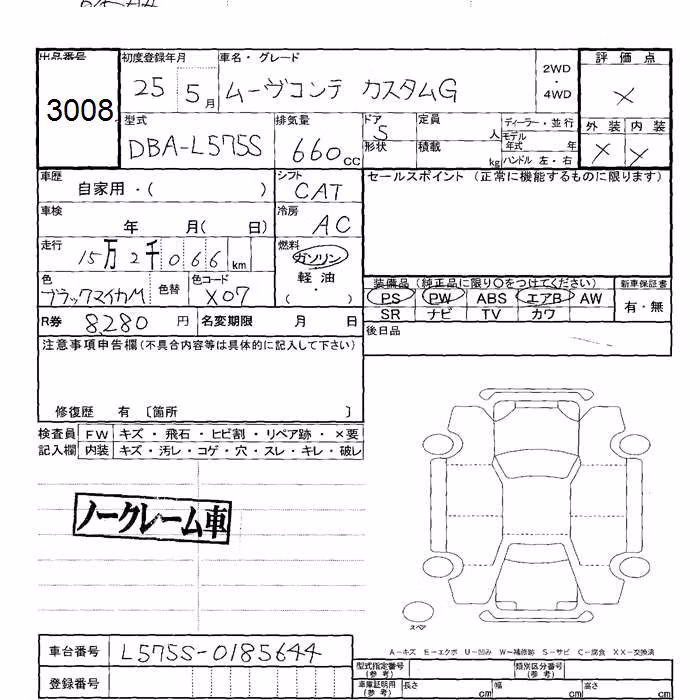 出品番号 初度登録年月 車名・グレード 2WD・4WD 評価点
3008 25 5月 ムーヴコンテ カスタムG ×
型式 排気量 ドア 定員 ディーラー・並行 外装 内装
DBA-L575S 660cc 5 人 モデル年式 年 × ×
形状 積載 kg ハンドル 左・右
車歴 シフト セールスポイント (正常に機能するものに限ります)
自家用・( ) CAT
車検 冷房
年 月( 日) AC
走行 燃料
15万2千066km ガソリン
色 色替 色コード 軽油
ブラックマイカM X07 ・( )
装備品 (純正品に限り○をつけてください) 新車保証書
PS PW ABS エアB AW 有・無
SR ナビ TV カワ
R券 8,280 円 名変期限 月 日
後日品
注意事項申告欄(不具合内容等は具体的に記入して下さい)
修復歴 有 〔箇所 〕
検査員 FW キズ・飛石・ヒビ割・リペア跡・×要
記入欄 内装 キズ・汚レ・コゲ・穴・スレ・キレ・破レ
ノークレーム車
スペア
A-キズ E-エクボ U-凹み W-補修跡 S-サビ C-腐食 XX-交換済
車台番号 L575S-0185644
型式指定番号(参考) 類別区分番号(参考)
登録番号 車庫証明用(参考) 長さ cm 幅 cm 高さ cm